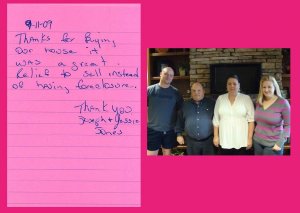 9-11-09
Thanks for Buying
our house it
was a great
Relief to sell instead
of having foreclosure..
Thank you
Joseph + Jessie
Jones